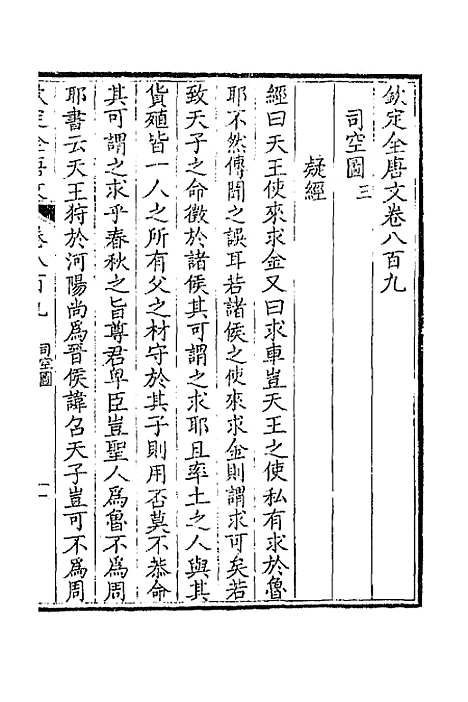 欽定全唐文卷八百九
司空圖三
疑經
經曰天王使來求金又曰求車豈天王之使私有求於魯
耶不然傳聞之誤耳若諸侯之使來求金則謂求可矣若
致天子之命徵於諸侯其可謂之求耶且率土之人與其
貨殖皆一人之所有父之材守於其子則用否莫不恭命
其可謂之求乎春秋之旨尊君卑臣豈聖人爲魯不爲周
耶書云天王狩於河陽尚爲晉侯諱召天子豈可不爲周
欽定全唐文 卷八百九 司空圖 一